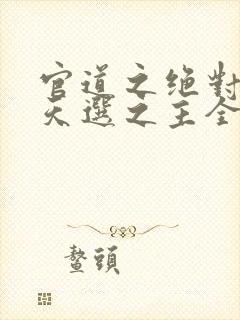 官道之绝對
天選之主全
鳌頭